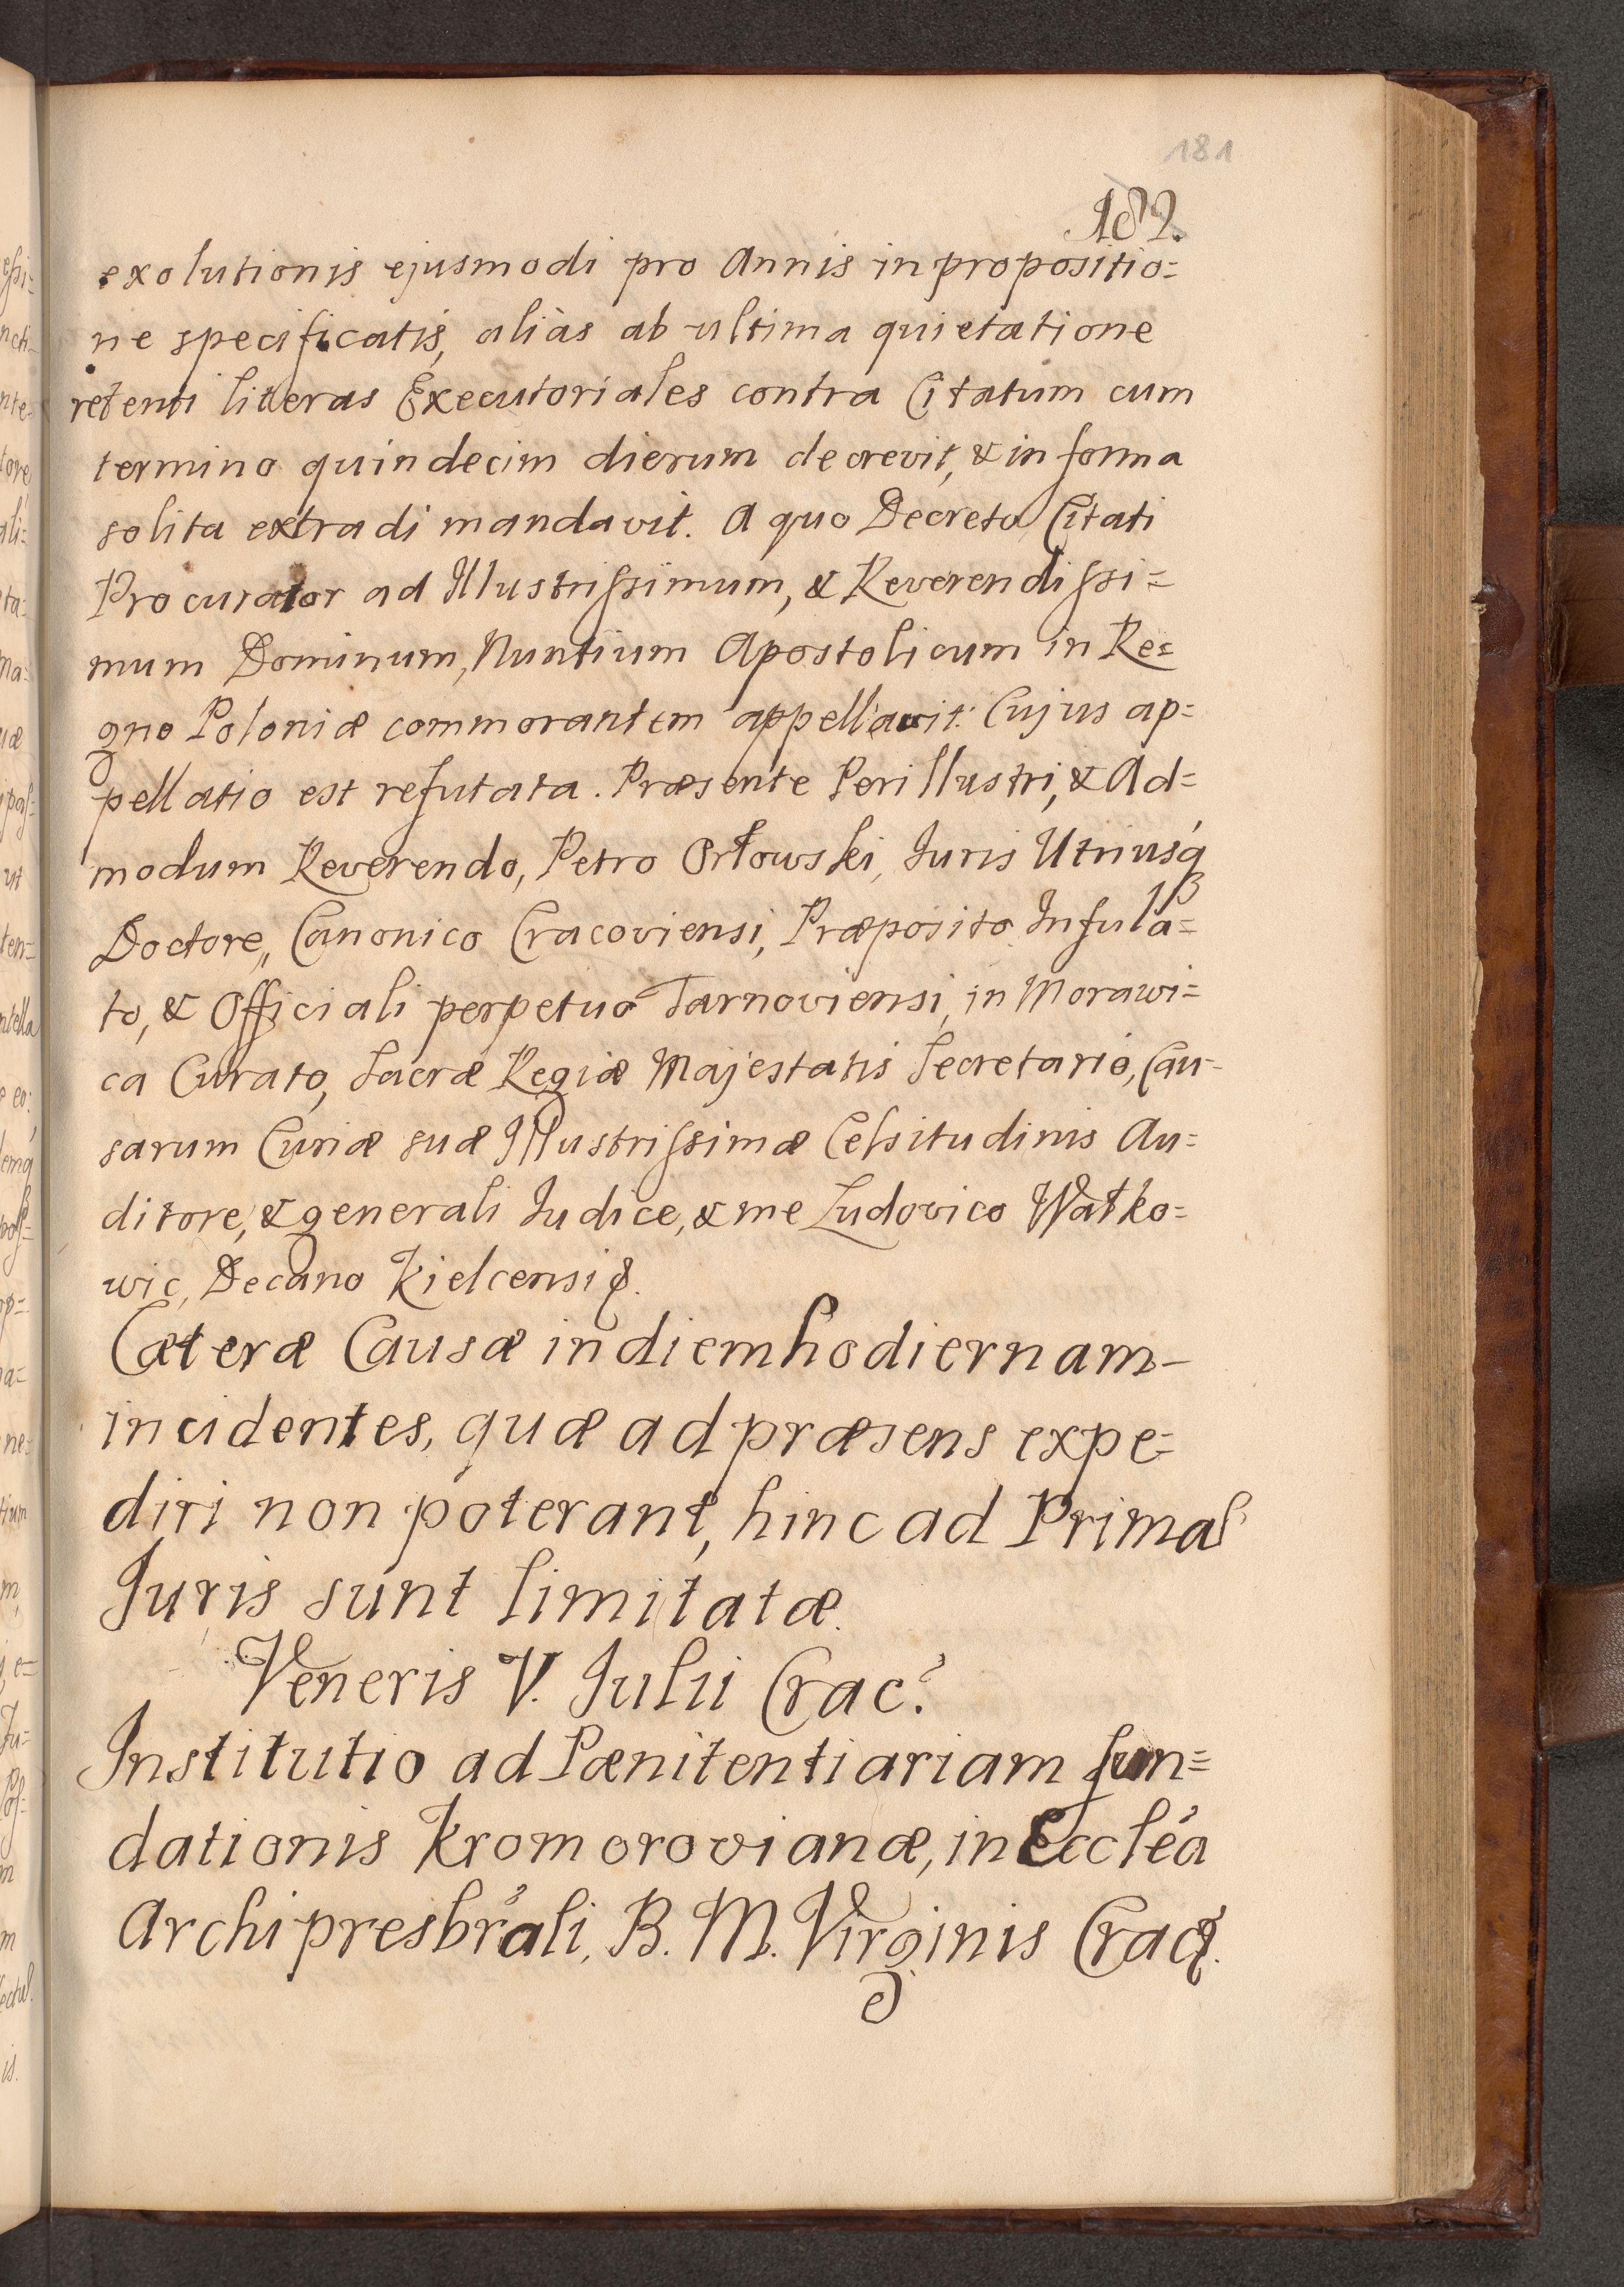 181
182.
exolutionis ejusmodi pro Annis in propositio=
ne specificatis, aliàs ab ultima quietatione
retenti literas Executoriales contra Citatum cum
termino quindecim dierum decrevit, & in forma
solita extradi mandavit. A quo Decreto Citati
Procurator ad Illustrissimum, & Reverendissi=
mum Dominum, Nuntium Apostolicum in Re=
gno Poloniæ commorantem appellavit: Cujus ap=
pellatio est refutata. Præsente Perillustri, & Ad=
modum Reverendo, Petro Orłowski, Juris Utriusq́
Doctore, Canonico Cracoviensi, Præposito Infula=
to, & Officiali perpetuo Tarnoviensi, in Morawi=
ca Curato, Sacræ Regiæ Majestatis Secretario, Cau-
sarum Curiæ suæ Illustrissimæ Celsitudinis Au=
ditore, & generali Judice, & me Ludovico Watko=
wic, Decano Kielcensi.
Cæteræ Causæ in diem hodiernam-
incidentes, quæ ad præsens expe=
diri non poterant, hinc ad Primas
Juris sunt limitatæ.
Veneris V. Julii Crac?
Institutio ad Pænitentiariam fun=
dationis Kromorovianæ, in Eccleá
Archipresbrali, B. M. Virginis Crac.